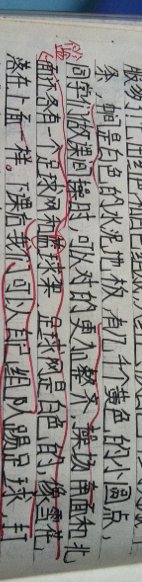 条，都是白色的水泥地板，有几千个黄色的小圆点，
同学们做课间操时，可以对的更加整齐。操场南面和北
面各有一个足球网和篮球架，足球网是白色的，像雪花
落在上面一样。下课后，我们可以自己组队踢足球，打